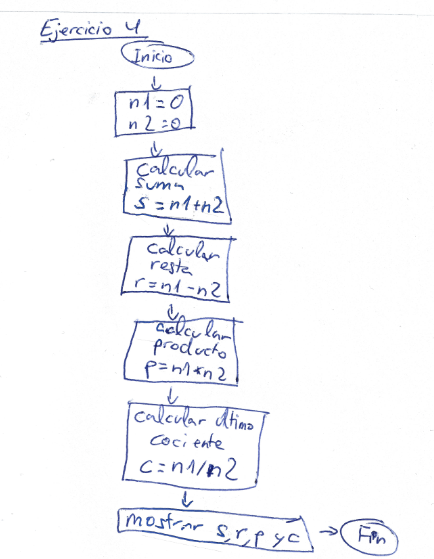 Ejercicio 4
Inicio
n1=0
n2=0
calcular
suma
s=n1+n2
calcular
resta
r=n1-n2
calcular
producto
p=n1*n2
calcular ultimo
cociente
c=n1/n2
mostrar s,r,p y c
Fin